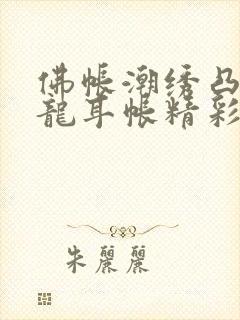 佛帐潮绣凸
龍耳帐精彩
朱麗麗